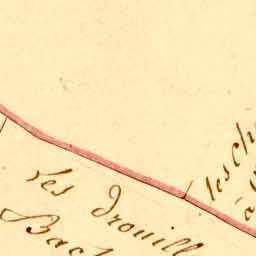 les Ch
à
les drouill
Bac